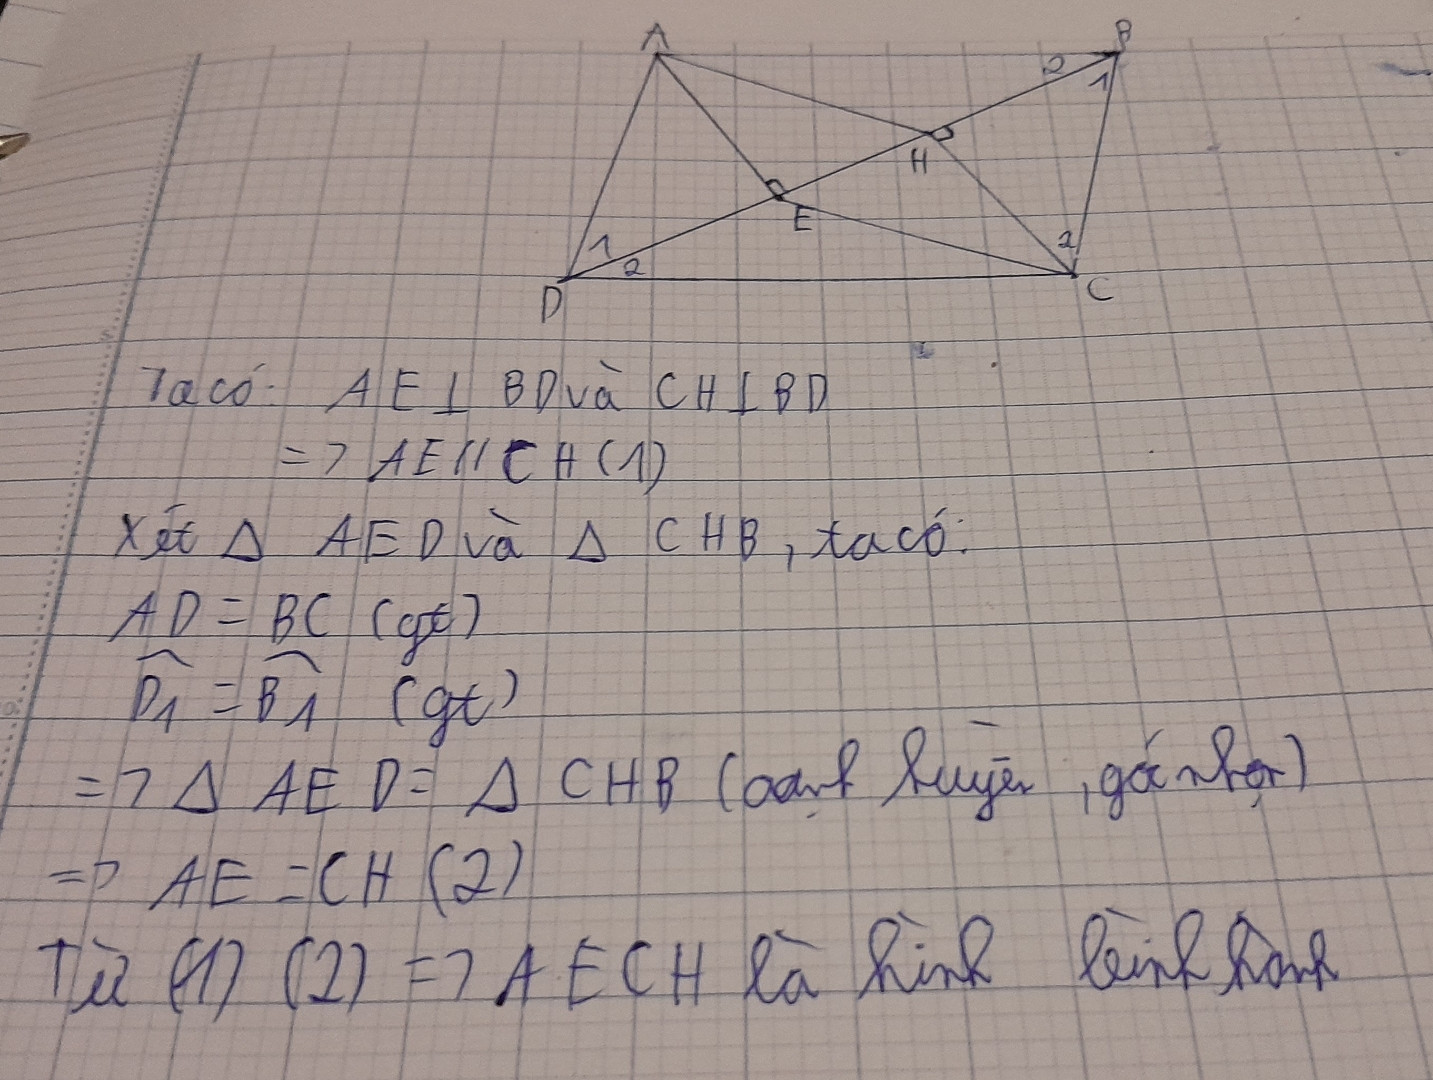 A
B
2
1
H
E
1
2
2
D
C
Ta có: AE⊥ BD và CH⊥BD
=> AE // CH (1)
Xét Δ AED và Δ CHB, ta có:
AD = BC (gt)
D̂1 = B̂1 (gt)
=> Δ AED = Δ CHB (cạnh huyền, góc nhọn)
=> AE = CH (2)
Từ (1) (2) => AECH là hình bình hành